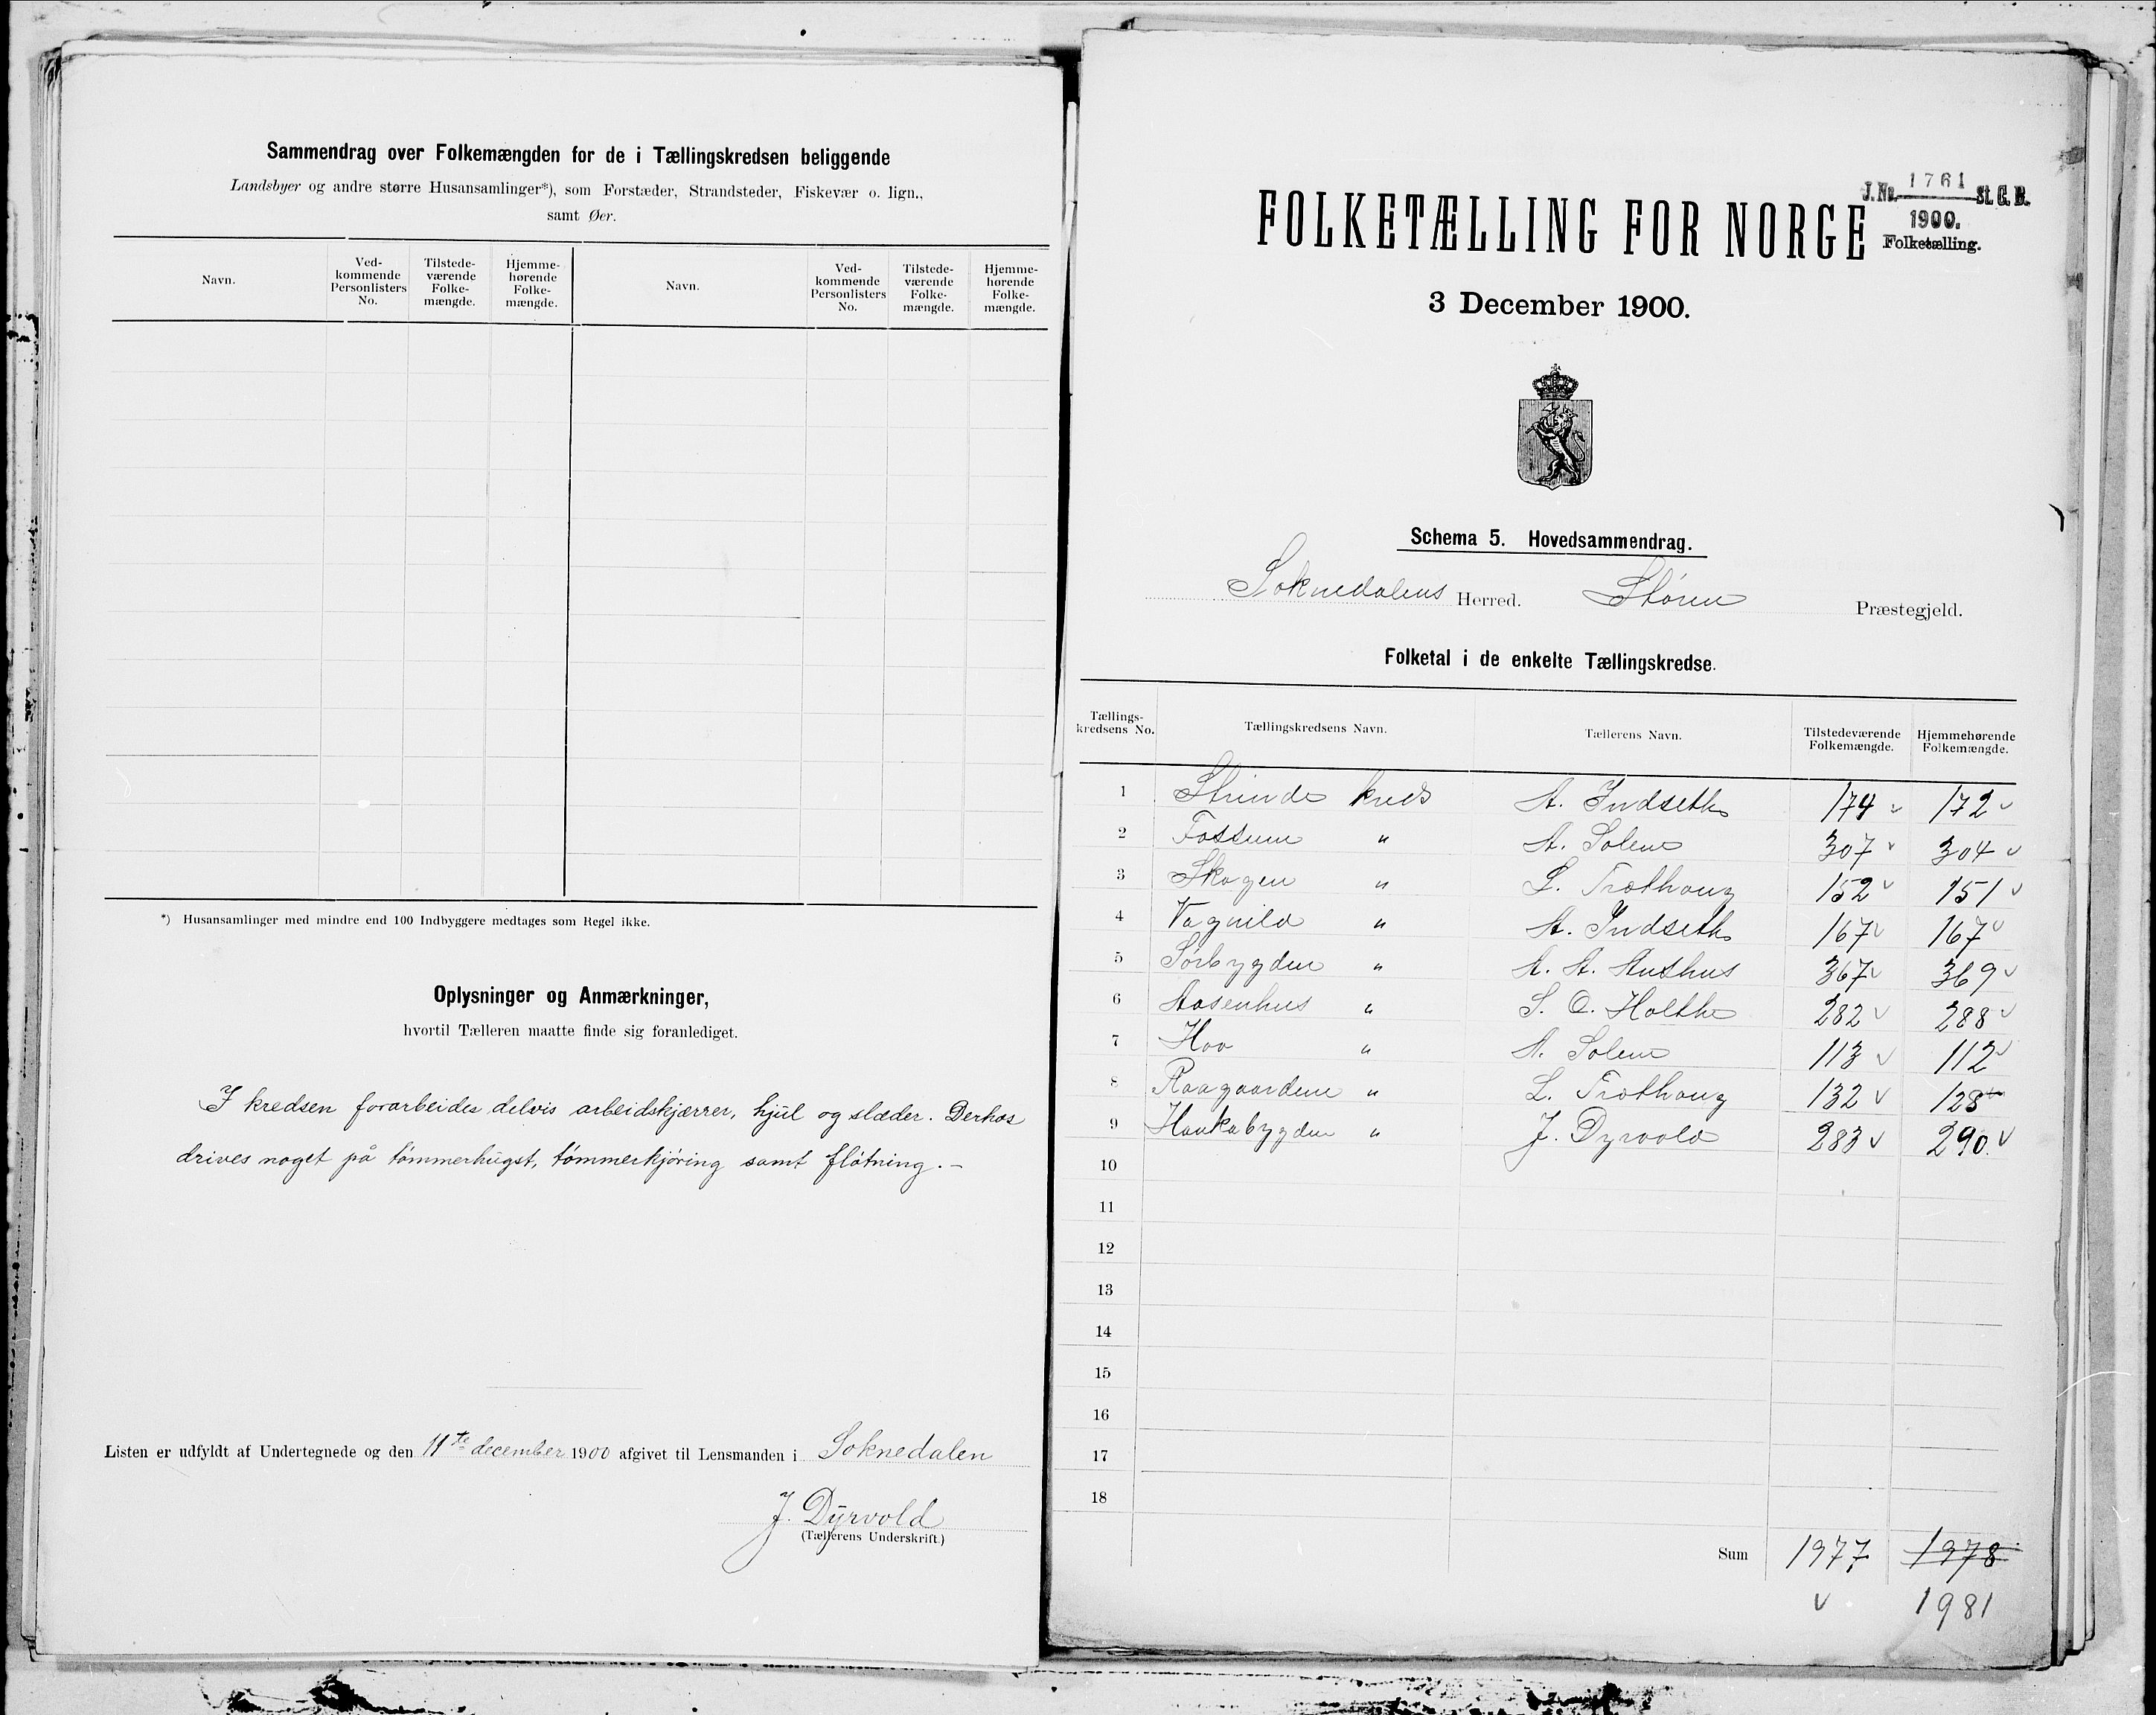 Sammendrag over Folkemængden for de i Tællingskredsen beliggende
Landsbyer og andre større Husansamlinger*), som Forstæder, Strandsteder, Fiskevær o. lign.,
samt Øer.
Navn. Ved-kommende Personlisters No. Tilstede-værende Folke-mængde. Hjemme-hørende Folke-mængde. Navn. Ved-kommende Personlisters No. Tilstede-værende Folke-mængde. Hjemme-hørende Folke-mængde.
*) Husansamlinger med mindre end 100 Indbyggere medtages som Regel ikke.
Oplysninger og Anmærkninger,
hvortil Tælleren maatte finde sig foranlediget.
I kredsen forarbeides delvis arbeidskjærrer, hjul og slæder. Derhos
drives noget på tømmerhugst, tømmerkjøring samt fløtning. –
Listen er udfyldt af Undertegnede og den 11te december 1900 afgivet til Lensmanden i Soknedalen
J. Dyrvold
(Tællerens Underskrift.)
J. No. 1761 St. C. B.
1900.
Folketælling.
FOLKETÆLLING FOR NORGE
3 December 1900.
Schema 5. Hovedsammendrag.
Soknedalens Herred. Støren Præstegjeld.
Folketal i de enkelte Tællingskredse.
Tællings-kredsens No. Tællingskredsens Navn. Tællerens Navn. Tilstedeværende Folkemængde. Hjemmehørende Folkemængde.
1 Strinde kreds A. Indseth 174 172
2 Fossum " A. Solem 307 304
3 Skogen " L. Træthaug 152 151
4 Vagnild " A. Indseth 167 167
5 Sørbygden " A. A. Austhus 367 369
6 Aasenhus " S. O. Holthe 282 288
7 Hov " A. Solem 113 112
8 Raagaardene " L. Træthaug 132 128
9 Haukabygden " J. Dyrvold 283 290
10
11
12
13
14
15
16
17
18
Sum 1977 1978
1981